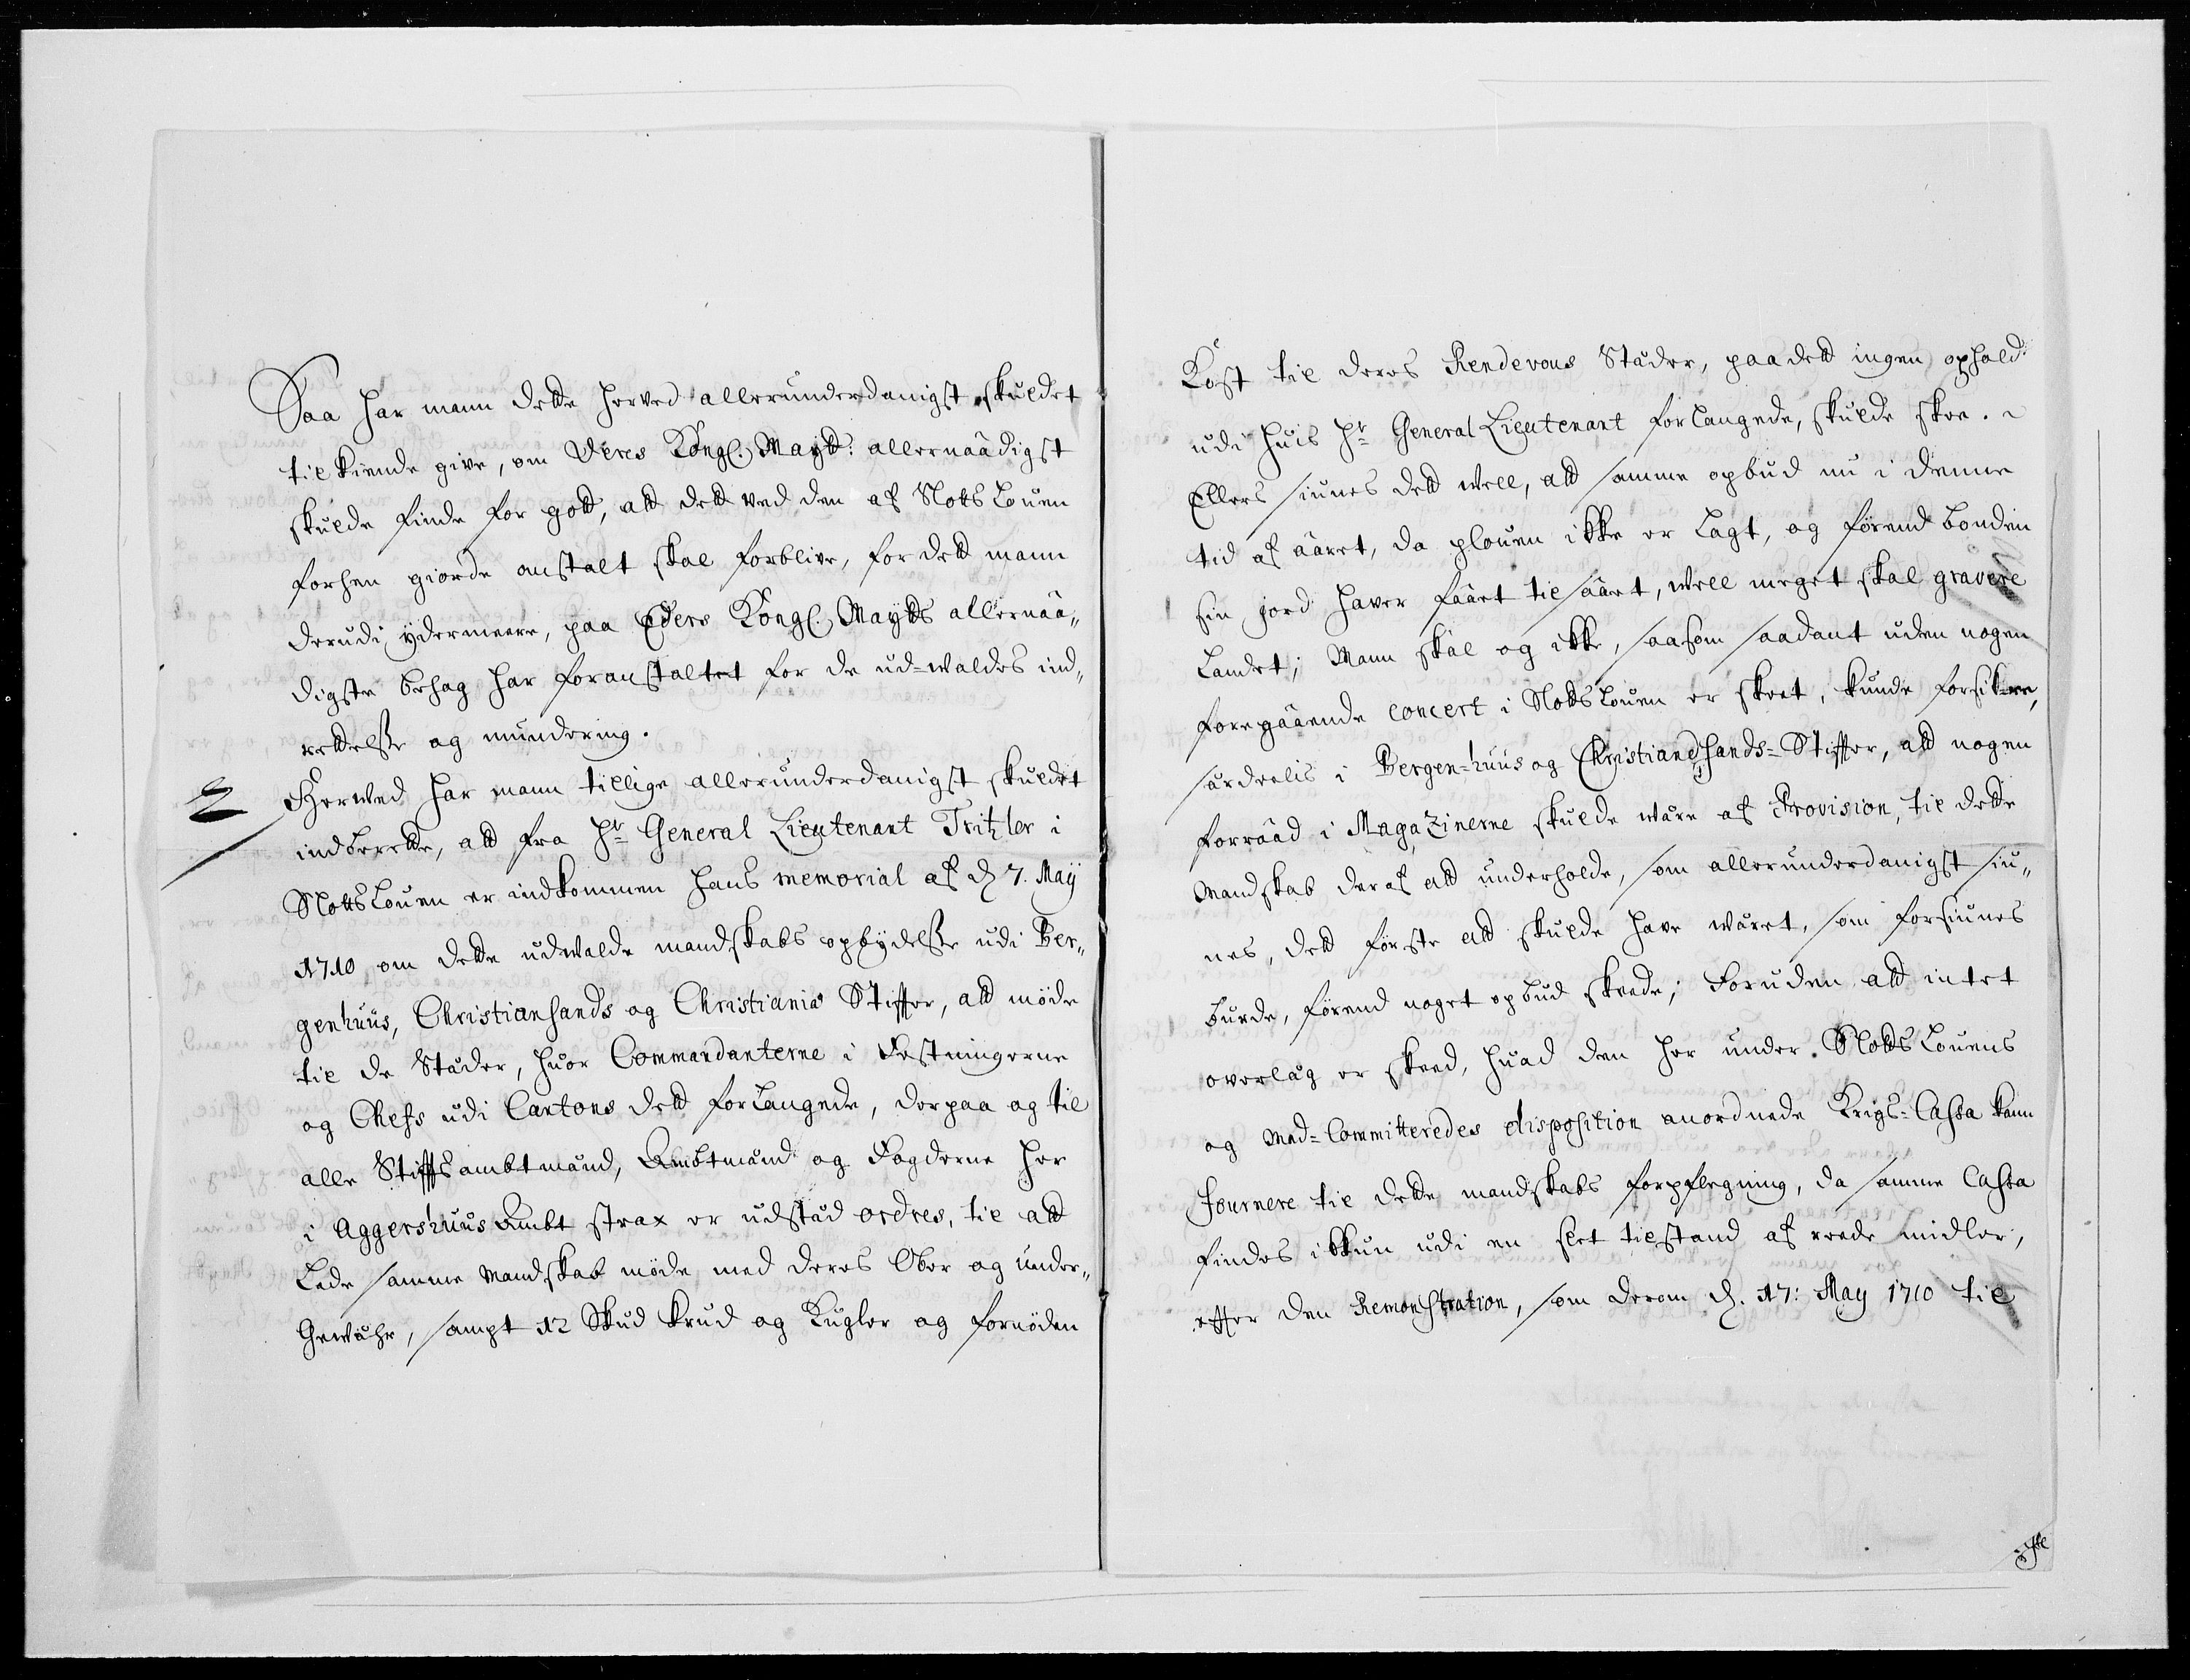 Saa har mann dette herved allerunderdanigst skuldet
tilkiende give, om Deres Kongl. Maytt: allernaadigst
skulde finde for gott, att dett ved den af Slotts Louen
forhen giorde anstalt skal forblive, for dett mann
derudi ydermeere, paa Eders Kongl. Maytts allernaa„
digste behag har foranstaltet for de ud-waldes ind„
rettelsse og mundering.
2
Herved har mann tillige allerunderdanigst skuldet
indberette, att fra Hr General Lieutenant Tritzler i
Slotts Louen er indkommen hans memorial af d 7. May
1710 om dette udwalde mandskabs opbydelsse udi Ber„
genhuus, Christiansands og Christianiæ Stiffter, att møde
til de Stæder, huor Commandanterne i Festningerne
og Chefs udi Cantons dett forlangede, derpaa og til
alle Stifftsambtmænd, Ambtmænd og Fogderne her
i Aggershuus Ambt strax er udstæd ordres, til att
Lade samme Mandskab møde med deres Ober og under„
Gewæhr, sampt 12 Skud krud og Kugler og fornøden
Kost til deres Rendevous Stæder, paa dett ingen ophold
udi huis Hr General Lieutenant forlangede, skulde skee.
Ellers siunes dett well, att samme opbud nu i denne
tid af aaret, da plouen ikke er Lagt, og førend bonden
sin jord haver faaet til saaet, well meget skal gravere
Landet; Mann skal og ikke, saasom saadant uden nogen
foregaaende concert i Slotts Louen er skeet, kunde forsikre,
særdeelis i Bergen=huus og Christiandsands=Stiffter, att nogen
forraad i Magazinerne skulde være af Provision, til dette
Mandskab deraf att underholde, som allerunderdanigst siu„
nes, dett første att skulde have wæret, som forsiunes
burde, førend noget opbud skeede; Foruden att intet
overlæg er skeed, huad den her under Slotts Louens
og Med=Committeredes disposition anordnede Krigs=Cassa kann
fournere til dette mandskabs forpflegning, da samme Cassa
findes ikkun udi en slet tilstand af reede midler,
effter den Remonstration, som derom d. 17: May 1710 til